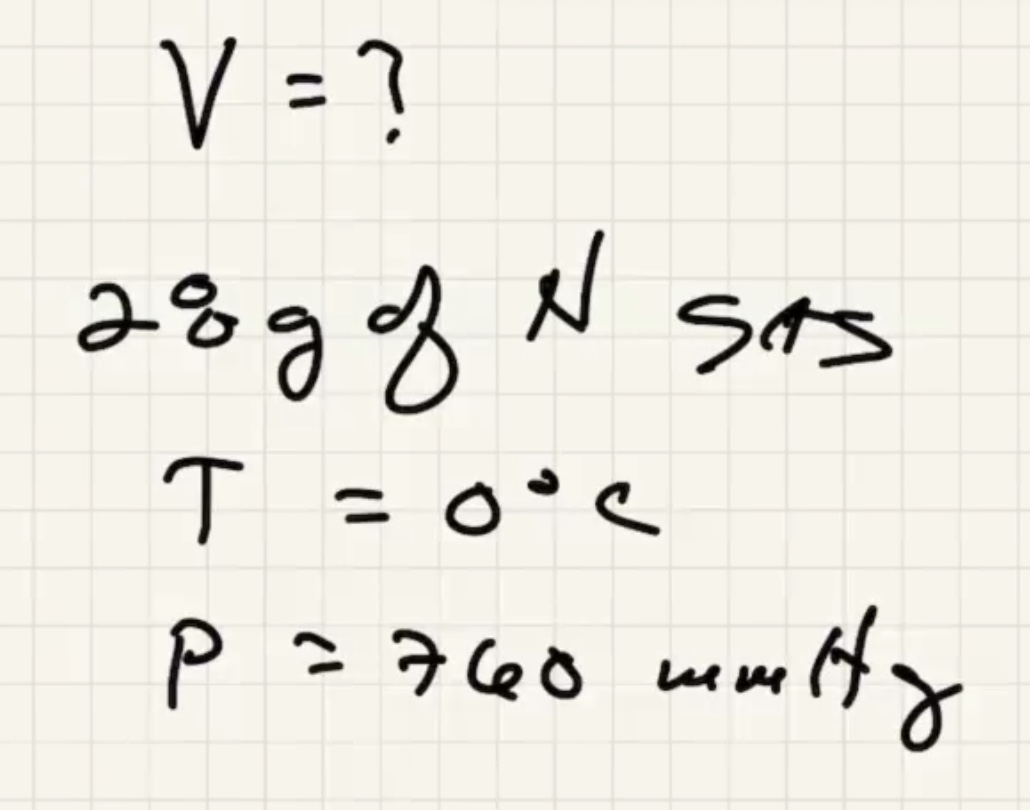 V = ?
28 g of N gas
T = 0°C
P = 760 mmHg